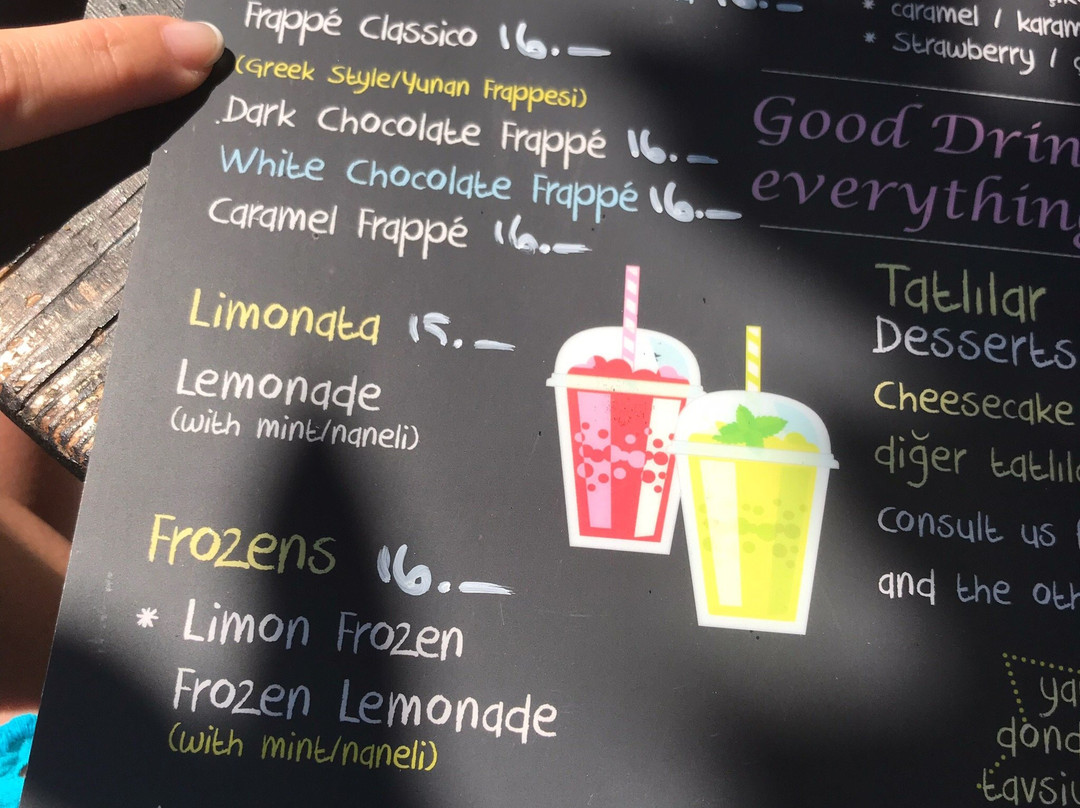 Frappé Classico 16.—
(Greek Style/Yunan Frappesi)
Dark Chocolate Frappé 16.—
White Chocolate Frappé 16.—
Caramel Frappé 16.—
Limonata 15.—
Lemonade
(with mint/naneli)
Frozens 16.—
* Limon Frozen
Frozen Lemonade
(with mint/naneli)
* caramel / karam
* Strawberry /
Good Drin
everything
Tatlılar
Desserts
Cheesecake
diğer tatlıla
Consult us
and the oth
ya
dond
tavsiy